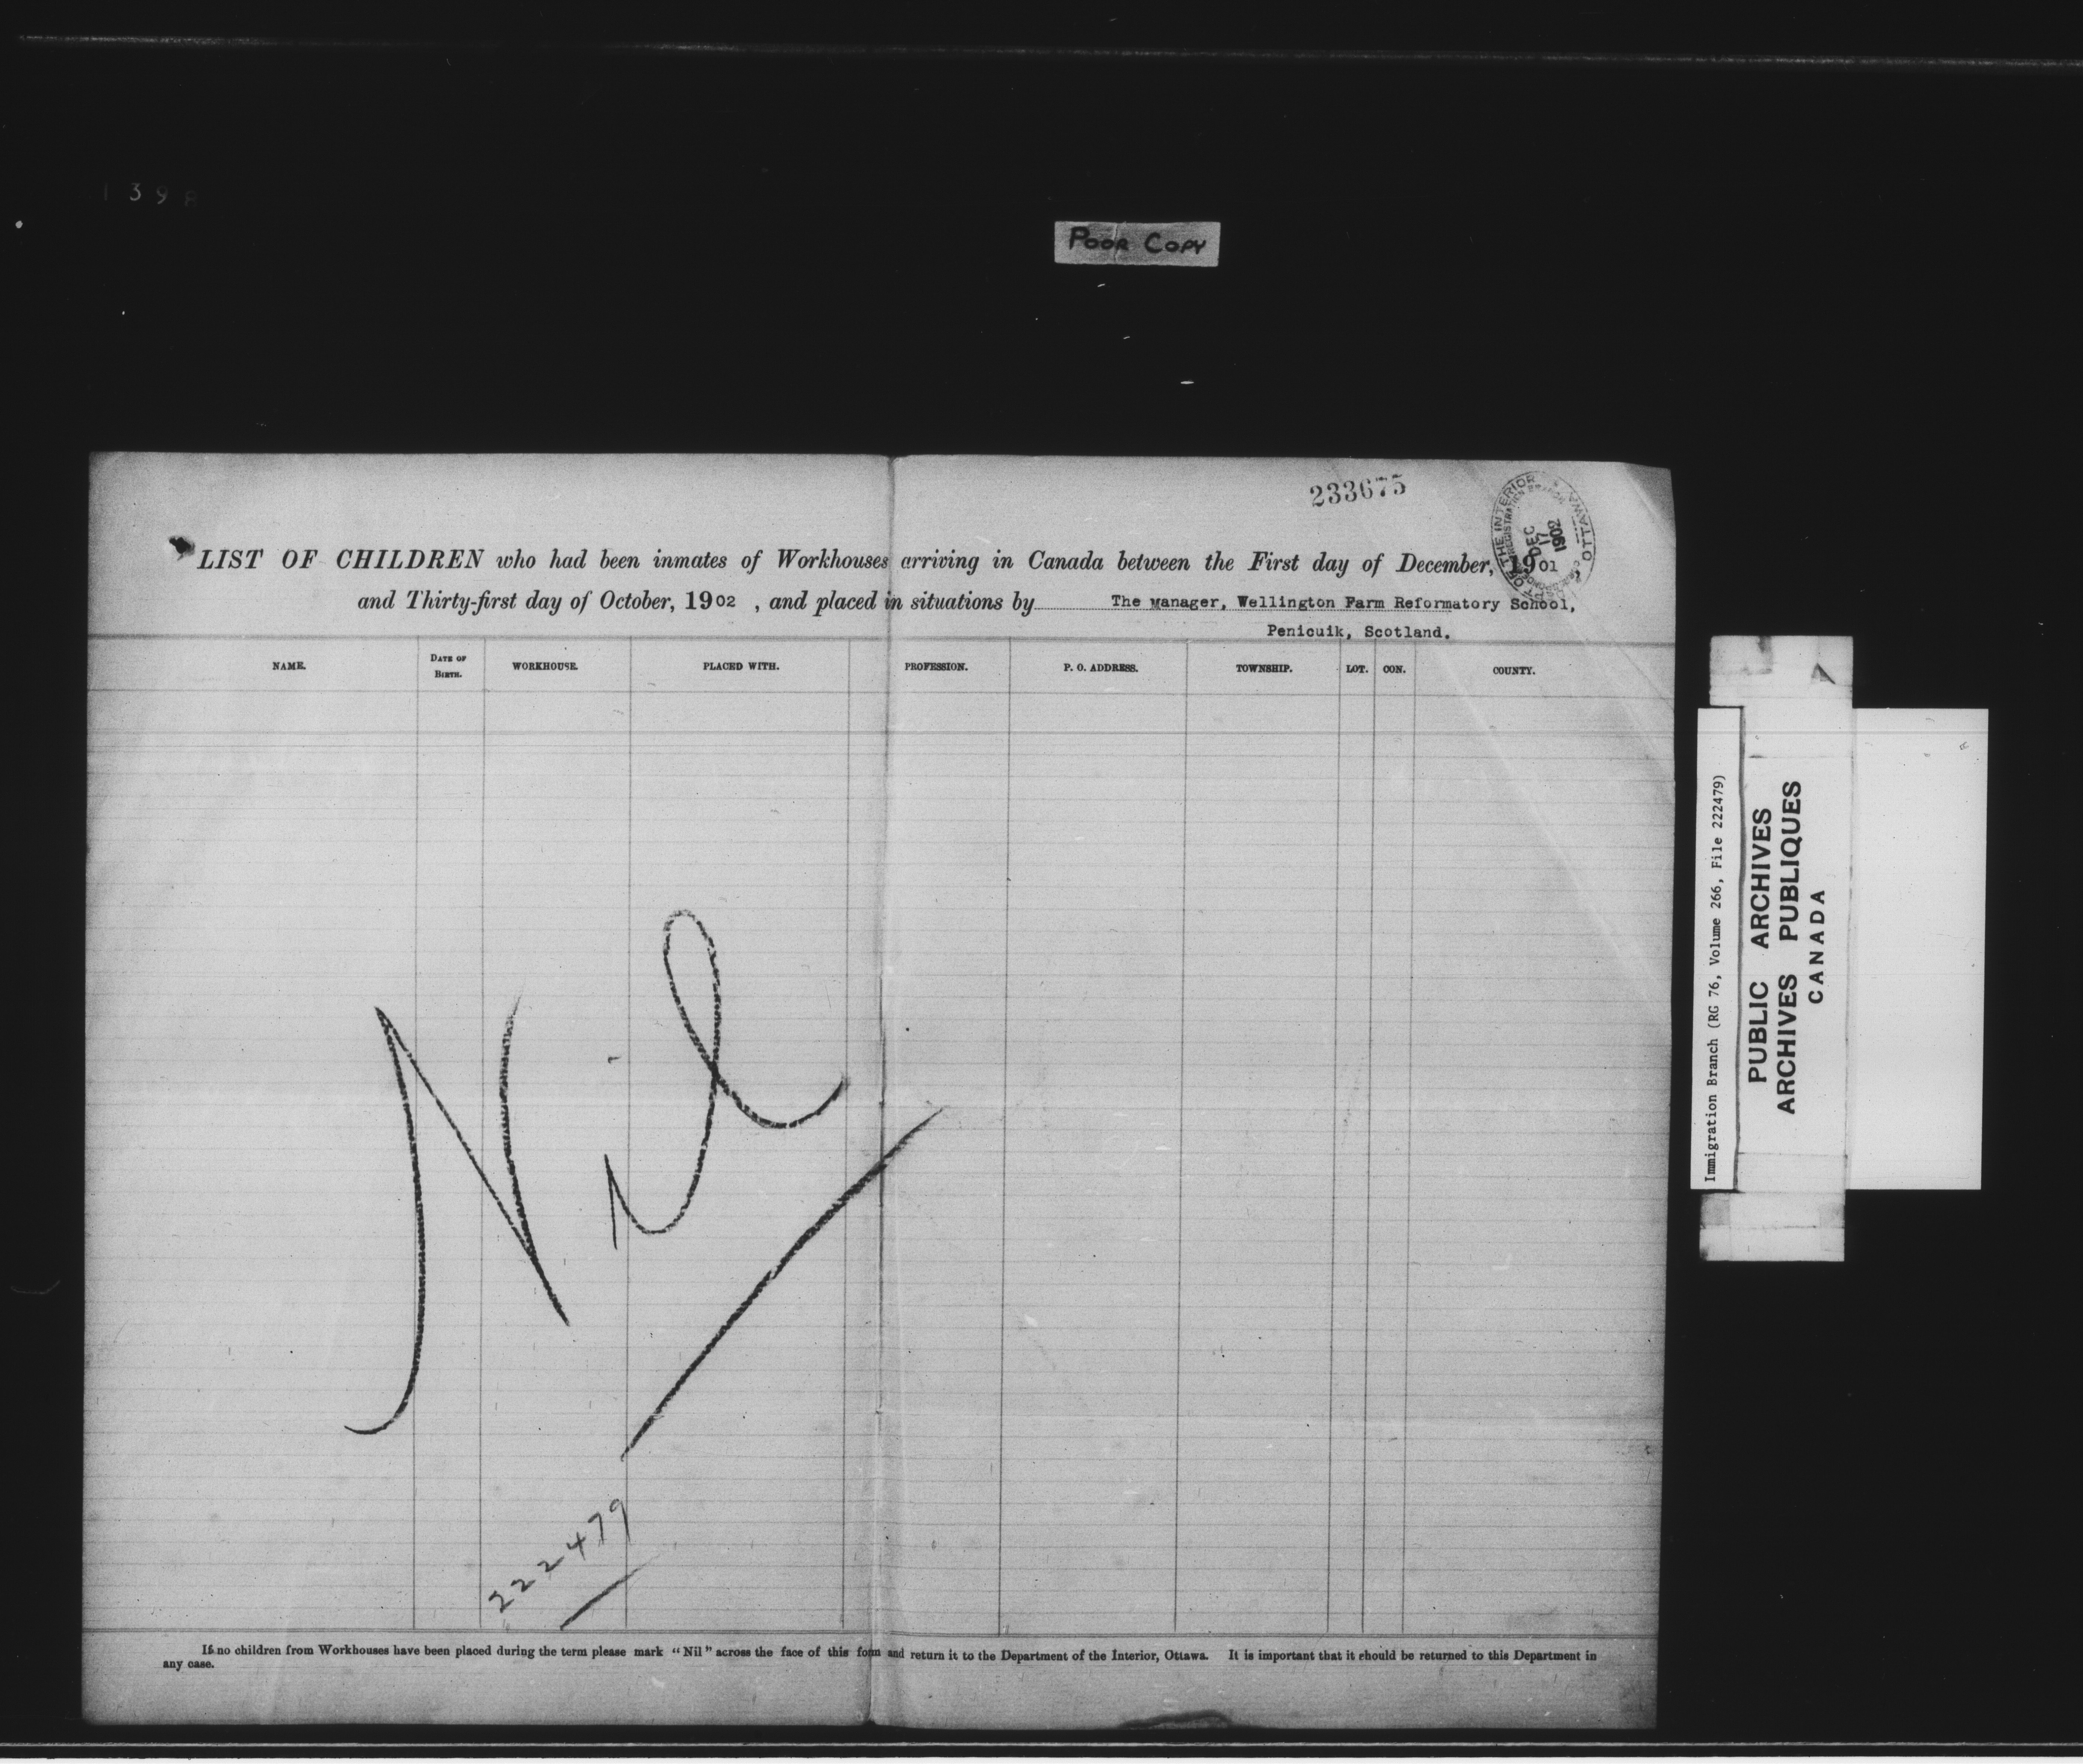 1398
POOR COPY
233675
OF THE INTERIOR
OTTAWA
REGISTRATION BRANCH
DEC
17
1902
LIST OF CHILDREN who had been inmates of Workhouses arriving in Canada between the First day of December, 1901
and Thirty-first day of October, 1902 , and placed in situations by The Manager, Wellington Farm Reformatory School,
Penicuik, Scotland.
NAME. DATE OF BIRTH. WORKHOUSE. PLACED WITH. PROFESSION. P. O. ADDRESS. TOWNSHIP. LOT. CON. COUNTY.
Nil
222479
If no children from Workhouses have been placed during the term please mark "Nil" across the face of this form and return it to the Department of the Interior, Ottawa. It is important that it should be returned to this Department in
any case.
Immigration Branch (RG 76, Volume 266, File 222479)
PUBLIC ARCHIVES
ARCHIVES PUBLIQUES
CANADA